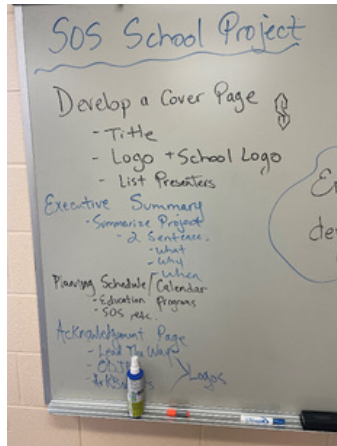 SOS School Project
Develop a Cover Page
- Title
- Logo + School Logo
- List Presenters
Executive Summary
- Summarize Project
- 2 Sentence.
- What
- Why
- When
Planning Schedule/Calendar
- Education Programs
- SOS, etc.
Acknowledgment Page
- Lead The Way
Logos